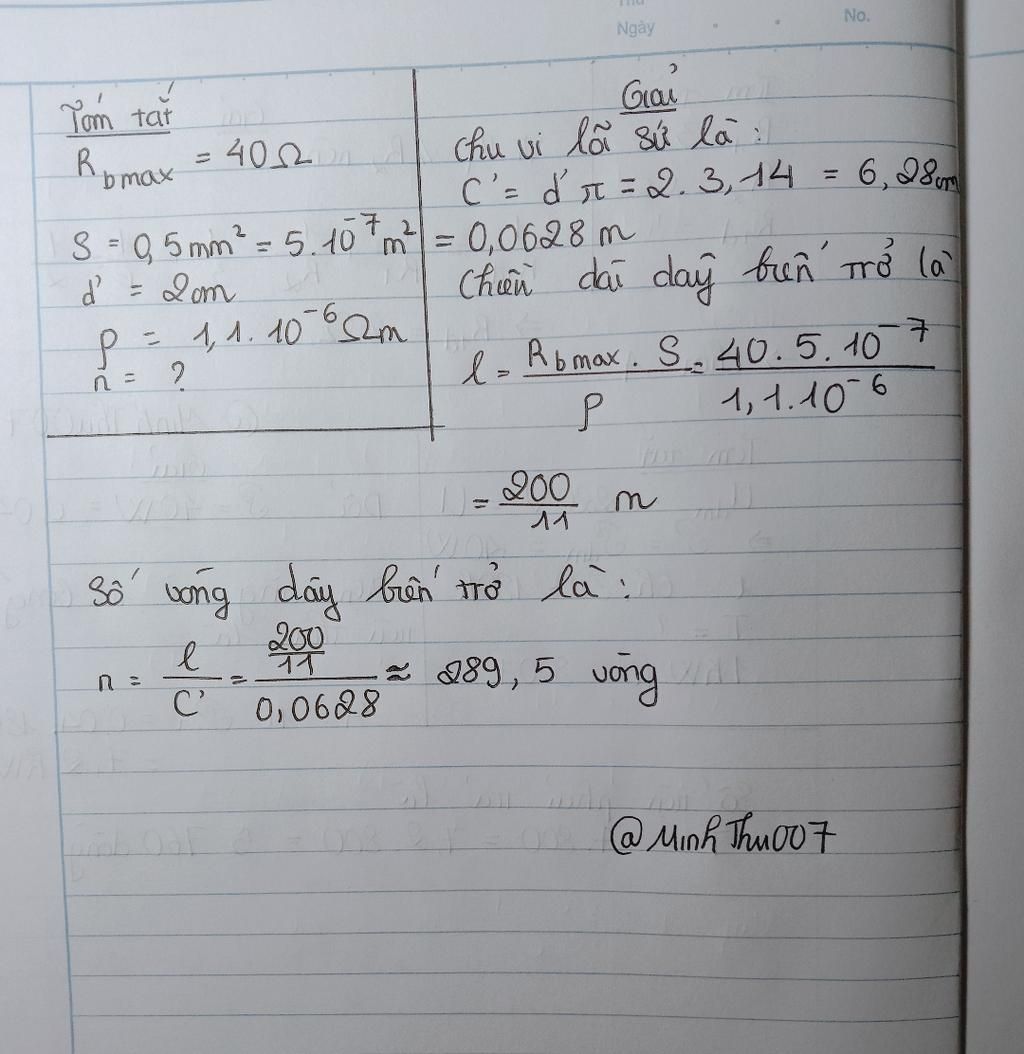 Thứ
Ngày
No.
Tóm tắt
R_bmax = 40Ω
S = 0,5mm² = 5.10⁻⁷m²
d' = 2cm
ρ = 1,1.10⁻⁶Ωm
n = ?
Giải
Chu vi lõi sứ là:
C' = d'π = 2.3,14 = 6,28cm
= 0,0628m
Chiều dài dây biến trở là
l = R_bmax.S / ρ = 40.5.10⁻⁷ / 1,1.10⁻⁶
= 200/11 m
Số vòng dây biến trở là:
n = l/C' = (200/11)/0,0628 ≈ 289,5 vòng
@MinhThu007